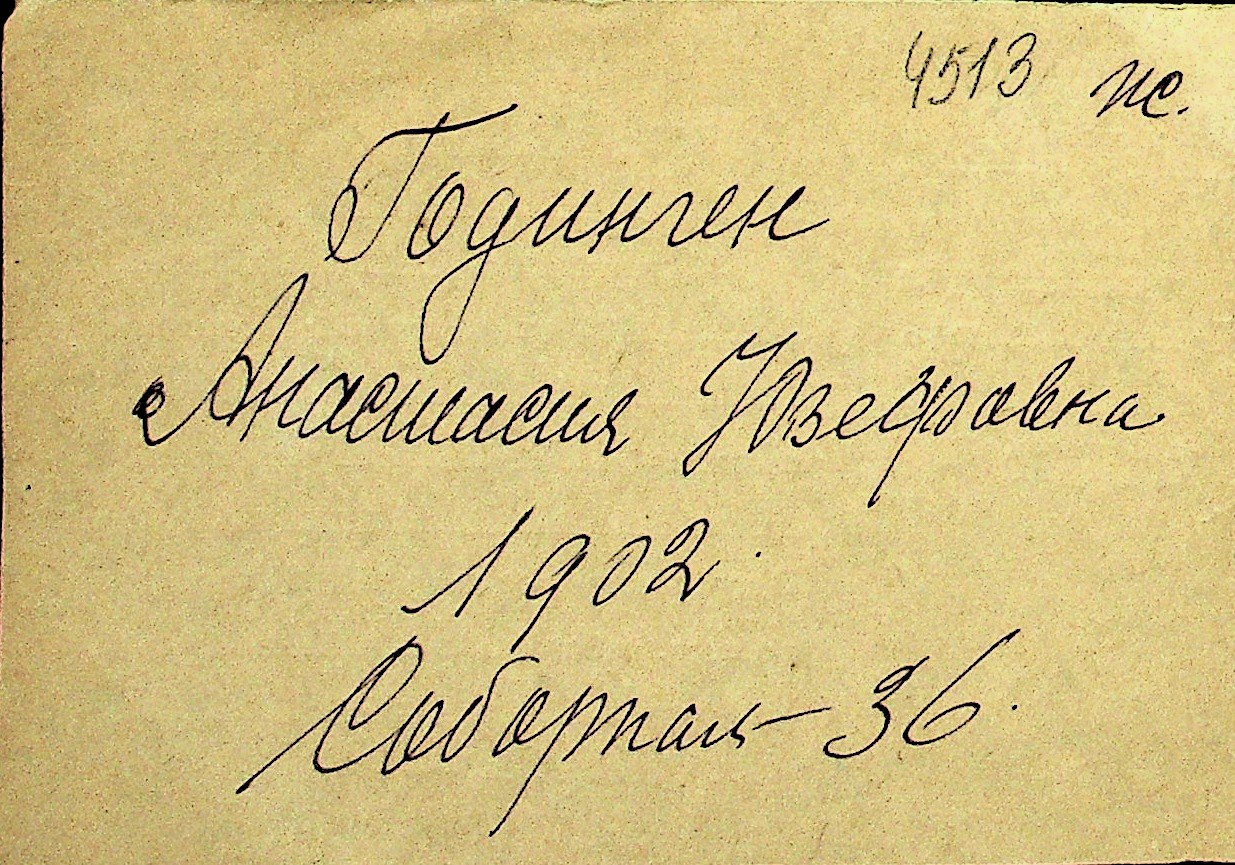 4513 ж.
Годинген
Анастасия Юзефовна
1902.
Соборная – 36.